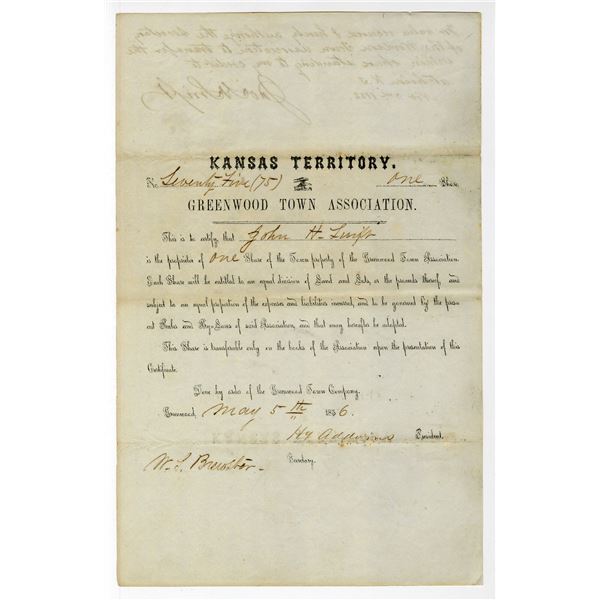 KANSAS TERRITORY.
No Seventy Five (75) one Share
GREENWOOD TOWN ASSOCIATION.
This is to certify, that John H. Swift
is the proprietor of one Share of the Town property of the Greenwood Town Association.
Each Share will be entitled to an equal division of Land and Lots, or the proceeds thereof, and
subject to an equal proportion of the expenses and liabilities incurred, and to be governed by the pres-
ent Rules and By-Laws of said Association, and that may hereafter be adopted.
This Share is transferable only on the books of the Association upon the presentation of this
Certificate.
Done by order of the Greenwood Town Company.
Greenwood, May 5th 1856.
Hy President.
W. S. Brewster Secretary.